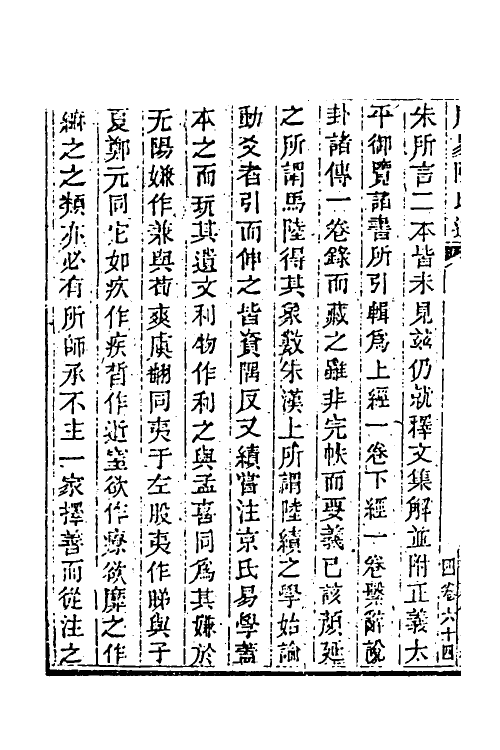 朱所言二本皆未見茲仍就釋文集解並附正義太
平御覽諸書所引輯爲上經一卷下經一卷繫辭說
卦諸傳一卷錄而藏之雖非完帙而要義已該顏延
之所謂馬陸得其象數朱漢上所謂陸績之學始論
動爻者引而伸之皆資隅反又績嘗注京氏易學蓋
本之而玩其遺文利物作利之與孟喜同爲其嫌於
无陽嫌作兼與荀爽虞翻同夷于左股夷作睇與子
夏鄭元同它如疢作疾晢作逝窒欲作𢥠欲靡之作
縻之之類亦必有所師承不主一家擇善而從注之